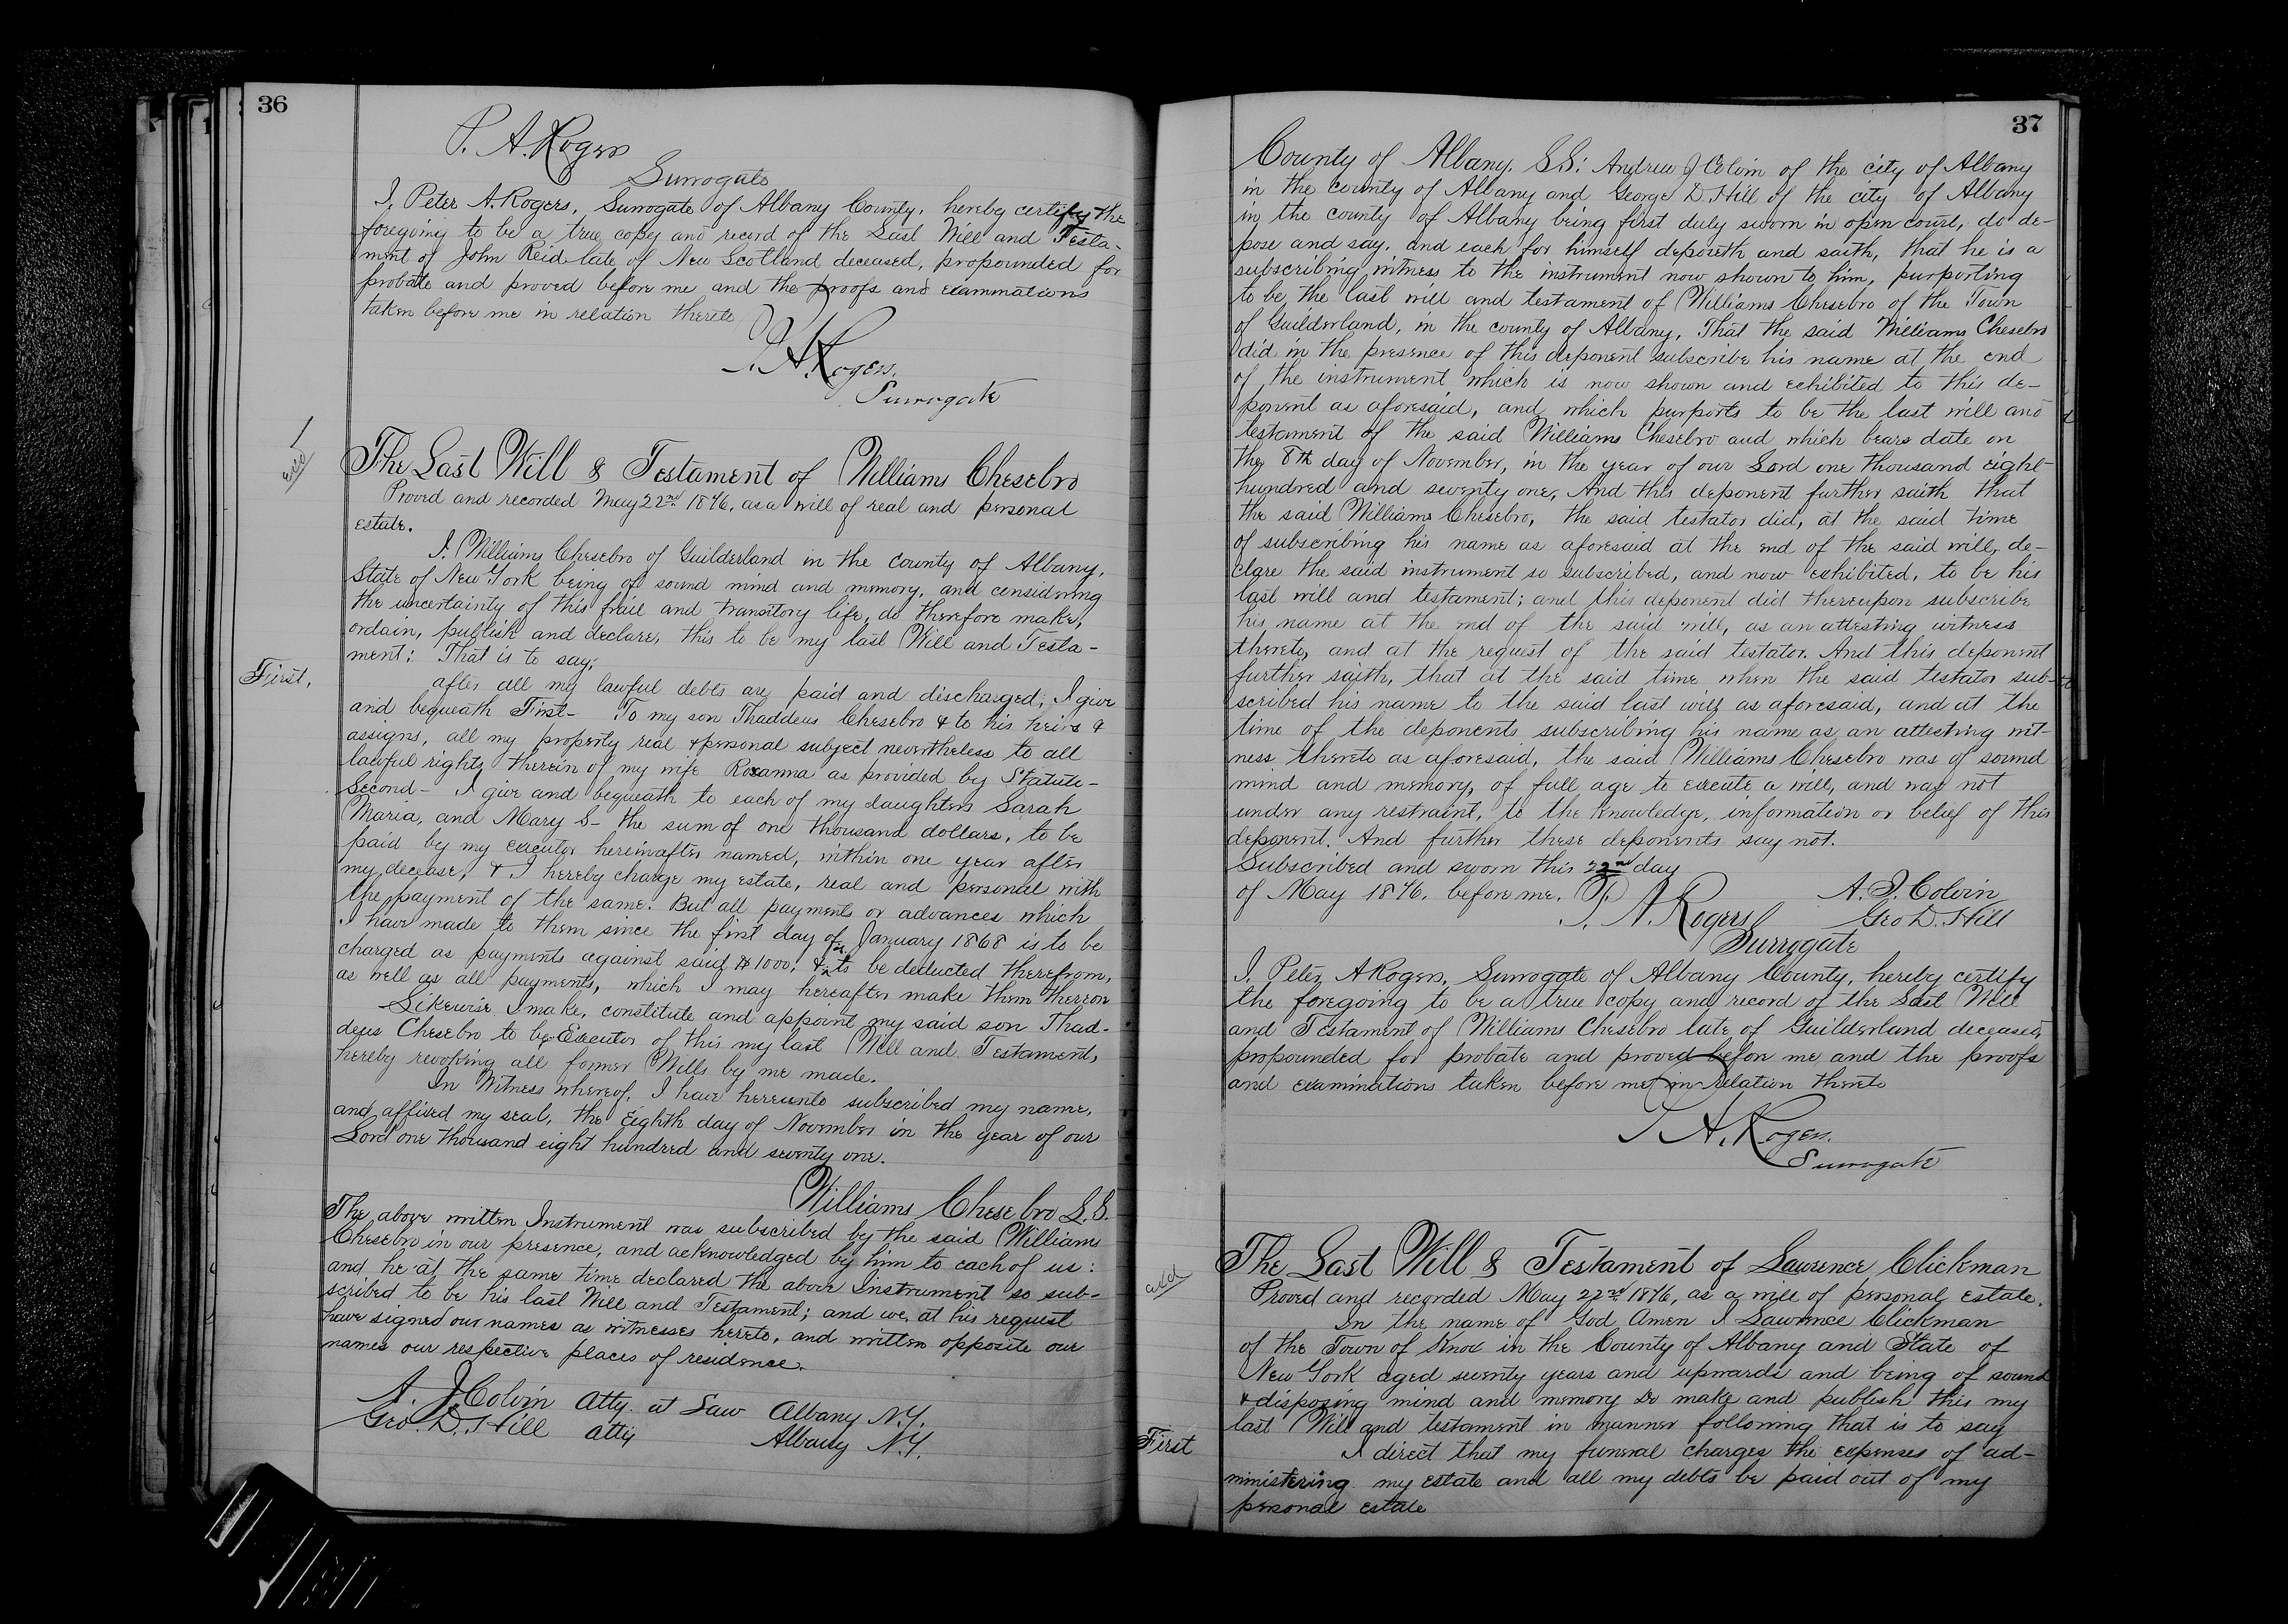 36
P. A. Rogers
Surrogate
I, Peter A. Rogers, Surrogate of Albany County, hereby certify the
foregoing to be a true copy and record of the Last Will and Testa-
ment of John Reid late of New Scotland deceased, propounded for
probate and proved before me and the proofs and examinations
taken before me in relation thereto
P. A. Rogers.
Surrogate
The Last Will & Testament of Williams Chesebro
Proved and recorded May 22nd 1876, as a will of real and personal
estate.
I, Williams Chesebro of Guilderland in the county of Albany,
State of New York being of sound mind and memory, and considring
the uncertainty of this frail and transitory life, do therefore make,
ordain, publish and declare, this to be my last Will and Testa-
ment: That is to say;
First, after all my lawful debts are paid and discharged; I give
and bequeath First- To my son Thaddeus Chesebro & to his heirs &
assigns, all my property real & personal subject nevertheless to all
lawful rights therein of my wife Roxanna as provided by Statute-
Second- I give and bequeath to each of my daughters Sarah
Maria, and Mary S- the sum of one thousand dollars, to be
paid by my executor hereinafter named, within one year after
my decease, & I hereby charge my estate, real and personal with
the payment of the same. But all payments or advances which
I have made to them since the first day of January 1868 is to be
charged as payments against said $1000, & is to be deducted therefrom,
as well as all payments, which I may hereafter make them thereon
Likewise I make, constitute and appoint my said son Thad-
deus Chesebro to be Executor of this my last Will and Testament,
hereby revoking all former Wills by me made.
In Witness whereof, I have hereunto subscribed my name,
and affixed my seal, the Eighth day of November in the year of our
Lord one thousand eight hundred and seventy one.
Williams Chesebro L.S.
The above written Instrument was subscribed by the said Williams
Chesebro in our presence, and acknowledged by him to each of us:
and he at the same time declared the above Instrument so sub-
scribed to be his last Will and Testament; and we, at his request
have signed our names as witnesses hereto, and written opposite our
names our respective places of residence.
A. J. Colvin Atty. at Law Albany N.Y.
Geo. D. Hill Atty Albany N.Y.
37
County of Albany. S.S: Andrew J Colvin of the city of Albany
in the county of Albany and George D. Hill of the city of Albany
in the county of Albany being first duly sworn in open court, do de-
pose and say, and each for himself deposeth and saith, that he is a
subscribing witness to the instrument now shown to him, purporting
to be the last will and testament of Williams Chesebro of the Town
of Guilderland, in the county of Albany, That the said Williams Chesebro
did in the presence of this deponent subscribe his name at the end
of the instrument which is now shown and exhibited to this de-
ponent as aforesaid, and which purports to be the last will and
testament of the said Williams Chesebro and which bears date on
the 8th day of November, in the year of our Lord one thousand eight
hundred and seventy one, And this deponent further saith that
the said Williams Chesebro, the said testator did, at the said time
of subscribing his name as aforesaid at the end of the said will, de-
clare the said instrument so subscribed, and now exhibited, to be his
last will and testament; and this deponent did thereupon subscribe
his name at the end of the said will, as an attesting witness
thereto, and at the request of the said testator. And this deponent
further saith, that at the said time when the said testator sub-
scribed his name to the said last will as aforesaid, and at the
time of the deponents subscribing his name as an attesting wit-
ness thereto as aforesaid, the said Williams Chesebro was of sound
mind and memory, of full age to execute a will, and was not
under any restraint, to the knowledge, information or belief of this
deponent. And further these deponents say not.
Subscribed and sworn this 22nd day
of May 1876. before me. A. J. Colvin
P. A. Rogers Geo D. Hill
Surrogate
I, Peter A Rogers, Surrogate of Albany County, hereby certify
the foregoing to be a true copy and record of the Last Will
and Testament of Williams Chesebro late of Guilderland deceased,
propounded for probate and proved before me and the proofs
and examinations taken before me in relation thereto
P. A. Rogers.
Surrogate
The Last Will & Testament of Lawrence Clickman
Proved and recorded May 22nd 1876, as a will of personal estate.
In the name of God Amen I Lawrence Clickman
of the Town of Knox in the County of Albany and State of
New York aged seventy years and upwards and being of sound
& disposing mind and memory Do make and publish this my
last Will and testament in manner following that is to say
First I direct that my funeral charges the expenses of ad-
ministering my estate and all my debts be paid out of my
personal estate